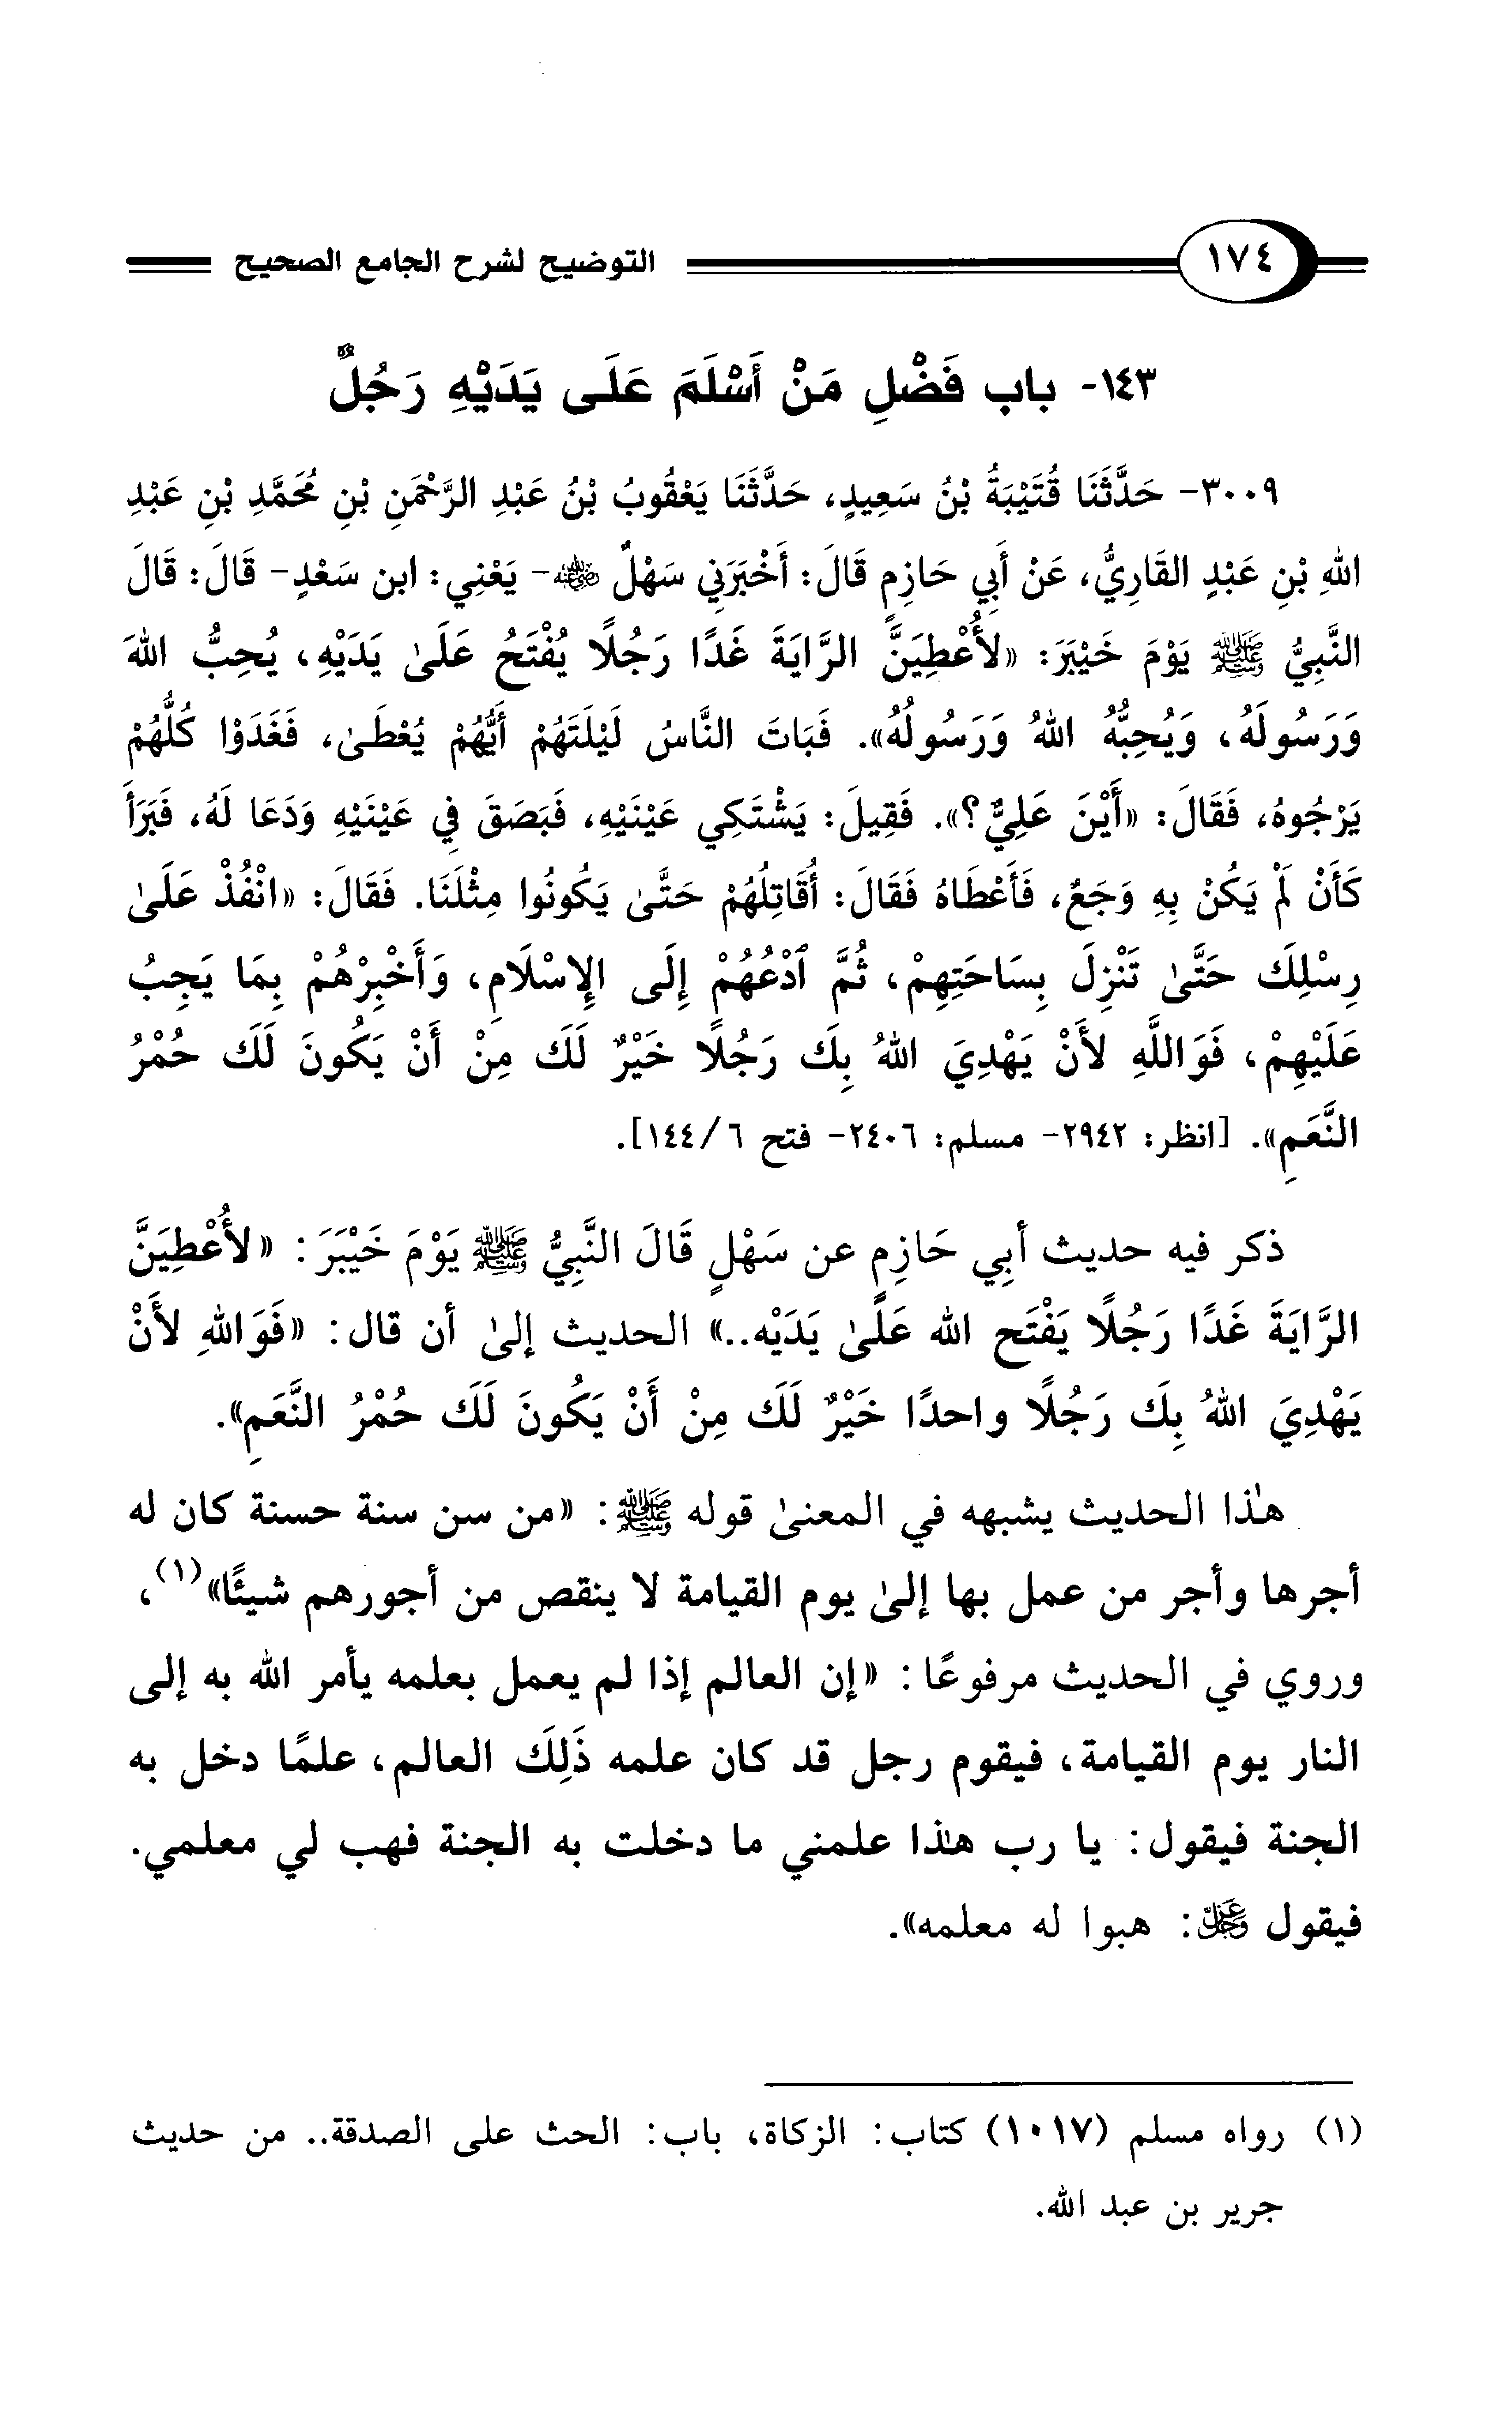 ١٧٤ التوضيح لشرح الجامع الصحيح
١٤٣- باب فَضْلِ مَنْ أَسْلَمَ عَلَى يَدَيْهِ رَجُلٌ
٣٠٠٩- حَدَّثَنَا قُتَيْبَةُ بْنُ سَعِيدٍ، حَدَّثَنَا يَعْقُوبُ بْنُ عَبْدِ الرَّحْمَنِ بْنِ مُحَمَّدِ بْنِ عَبْدِ
اللهِ بْنِ عَبْدٍ القَارِيُّ، عَنْ أَبِي حَازِمٍ قَالَ: أَخْبَرَنِي سَهْلٌ رضي الله عنه - يَعْنِي: ابن سَعْدٍ- قَالَ: قَالَ
النَّبِيُّ ﷺ يَوْمَ خَيْبَرَ: «لأُعْطِيَنَّ الرَّايَةَ غَدًا رَجُلًا يُفْتَحُ عَلَىٰ يَدَيْهِ، يُحِبُّ اللهَ
وَرَسُولَهُ، وَيُحِبُّهُ اللهُ وَرَسُولُهُ». فَبَاتَ النَّاسُ لَيْلَتَهُمْ أَيُّهُمْ يُعْطَىٰ، فَغَدَوْا كُلُّهُمْ
يَرْجُوهُ، فَقَالَ: «أَيْنَ عَلِيٌّ؟». فَقِيلَ: يَشْتَكِي عَيْنَيْهِ، فَبَصَقَ فِي عَيْنَيْهِ وَدَعَا لَهُ، فَبَرَأَ
كَأَنْ لَمْ يَكُنْ بِهِ وَجَعٌ، فَأَعْطَاهُ فَقَالَ: أُقَاتِلُهُمْ حَتَّىٰ يَكُونُوا مِثْلَنَا. فَقَالَ: «انْفُذْ عَلَىٰ
رِسْلِكَ حَتَّىٰ تَنْزِلَ بِسَاحَتِهِمْ، ثُمَّ ٱدْعُهُمْ إِلَى الإِسْلَامِ، وَأَخْبِرْهُمْ بِمَا يَجِبُ
عَلَيْهِمْ، فَوَاللَّهِ لأَنْ يَهْدِيَ اللهُ بِكَ رَجُلًا خَيْرٌ لَكَ مِنْ أَنْ يَكُونَ لَكَ حُمْرُ
النَّعَمِ». [انظر: ٢٩٤٢- مسلم: ٢٤٠٦- فتح ٦/ ١٤٤].
ذكر فيه حديث أبِي حَازِمٍ عن سَهْلٍ قَالَ النَّبِيُّ ﷺ يَوْمَ خَيْبَرَ: «لأُعْطِيَنَّ
الرَّايَةَ غَدًا رَجُلًا يَفْتَح الله عَلَىٰ يَدَيْه..» الحديث إلىٰ أن قال: «فَوَاللهِ لأَنْ
يَهْدِيَ اللهُ بِكَ رَجُلًا واحدًا خَيْرٌ لَكَ مِنْ أَنْ يَكُونَ لَكَ حُمْرُ النَّعَمِ».
هٰذا الحديث يشبهه في المعنىٰ قوله ﷺ: «من سن سنة حسنة كان له
أجرها وأجر من عمل بها إلىٰ يوم القيامة لا ينقص من أجورهم شيئًا»(١)،
وروي في الحديث مرفوعًا: «إن العالم إذا لم يعمل بعلمه يأمر الله به إلى
النار يوم القيامة، فيقوم رجل قد كان علمه ذَلِكَ العالم، علمًا دخل به
الجنة فيقول: يا رب هٰذا علمني ما دخلت به الجنة فهب لي معلمي.
فيقول عز وجل: هبوا له معلمه».
(١) رواه مسلم (١٠١٧) كتاب: الزكاة، باب: الحث على الصدقة.. من حديث
جرير بن عبد الله.